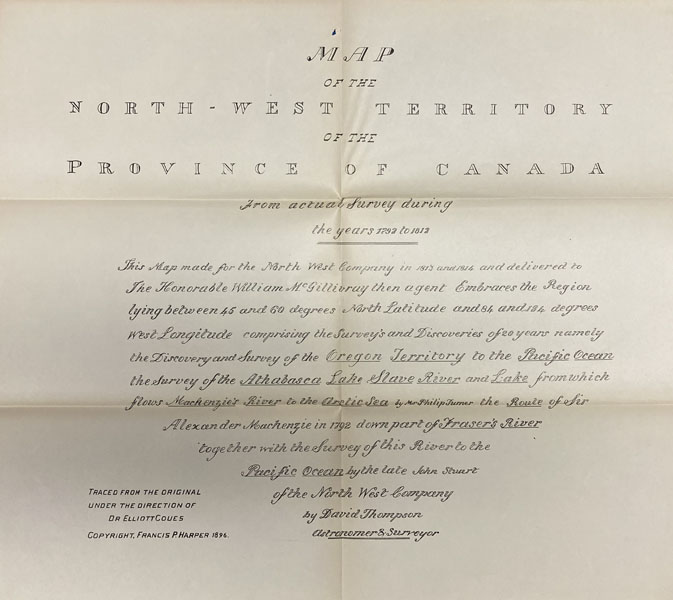 MAP
OF THE
NORTH-WEST TERRITORY
OF THE
PROVINCE OF CANADA
From actual Survey during
the years 1792 to 1812
This Map made for the North West Company in 1813 and 1814 and delivered to
The Honorable William McGillivray then agent Embraces the Region
lying between 45 and 60 degrees North Latitude and 84 and 124 degrees
West Longitude comprising the Survey's and Discoveries of 20 years namely
the Discovery and Survey of the Oregon Territory to the Pacific Ocean
the Survey of the Athabasca Lake Slave River and Lake from which
flows Mackenzie's River to the Arctic Sea by Mr Philip Turner the Route of Sir
Alexander Mackenzie in 1792 down part of Fraser's River
together with the Survey of this River to the
Pacific Ocean by the late John Stuart
of the North West Company
by David Thompson
Astronomer & Surveyor
TRACED FROM THE ORIGINAL
UNDER THE DIRECTION OF
DR ELLIOTT COUES
COPYRIGHT, FRANCIS P. HARPER 1896.